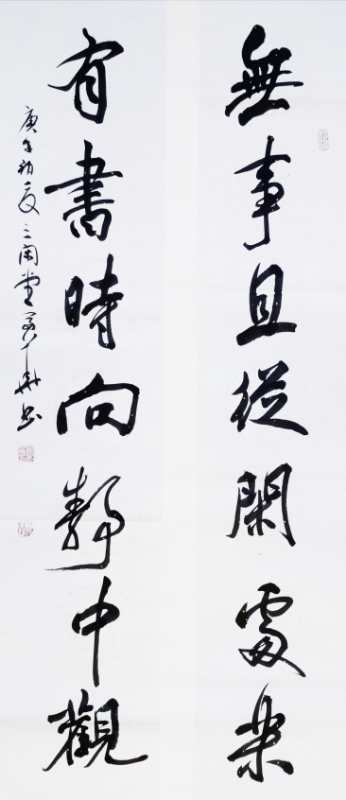 無事且從閑處樂
有書時向靜中觀
庚子初夏三闲堂